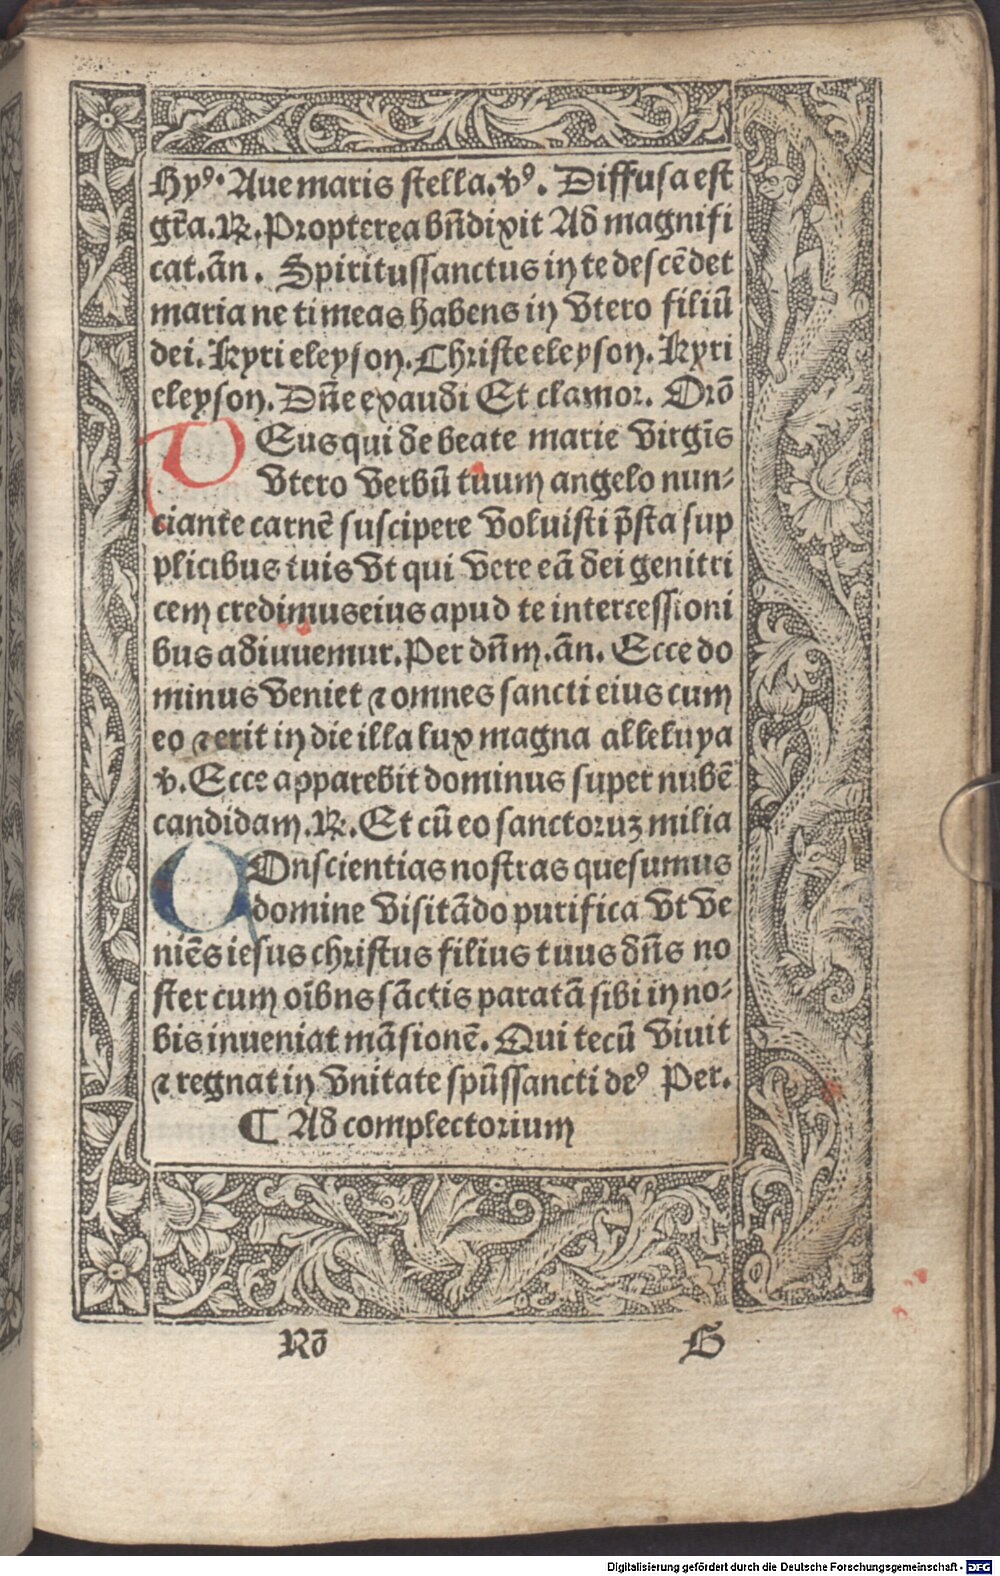 Hyꝰ. Aue maris stella. vꝰ. Diffusa est
gr̃a. ℟. Propterea bñdixit Ad magnifi
cat. ãn. Spiritussanctus in te descẽdet
maria ne timeas habens in vtero filiũ
dei. Kyri eleyson. Christe eleyson. Kyri
eleyson. Dñe exaudi Et clamor. Orõ
DEus qui de beate marie virgĩs
vtero verbũ tuum angelo nun⸗
ciante carnẽ suscipere voluisti p̃sta sup
plicibus tuis vt qui vere eã dei genitri
cem credimus eius apud te intercessioni
bus adiuuemur. Per dñm. ãn. Ecce do
minus veniet ⁊ omnes sancti eius cum
eo ⁊ erit in die illa lux magna alleluya
v. Ecce apparebit dominus super nubẽ
candidam. ℟. Et cũ eo sanctoruꝫ milia
COnscientias nostras quesumus
domine visitãdo purifica vt ve
niẽs iesus christus filius tuus dñs no
ster cum oĩbns sãctis paratã sibi in no⸗
bis inueniat mãsionẽ. Qui tecũ viuit
⁊ regnat in vnitate spũssancti deꝰ Per.
¶ Ad complectorium
Rõ G
Digitalisierung gefördert durch die Deutsche Forschungsgemeinschaft - DFG